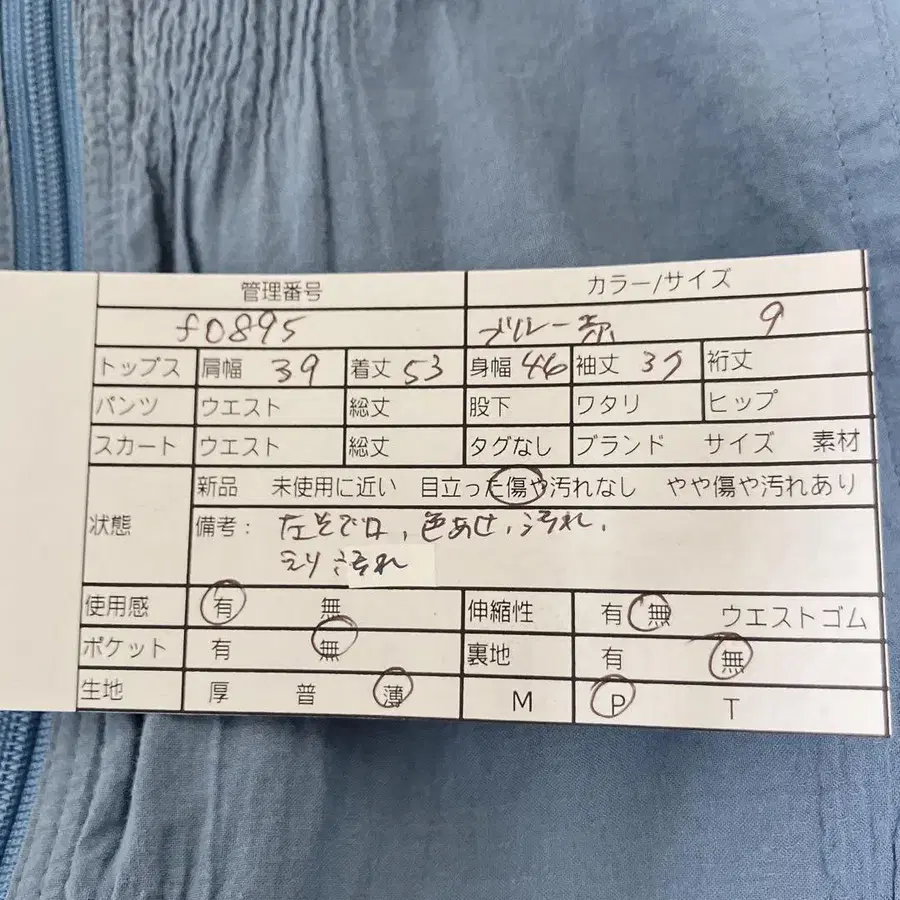 管理番号 カラー/サイズ
f0895 ブルー系 9
トップス 肩幅 39 着丈 53 身幅 46 袖丈 37 裄丈
パンツ ウエスト 総丈 股下 ワタリ ヒップ
スカート ウエスト 総丈 タグなし ブランド サイズ 素材
状態 新品 未使用に近い 目立った傷や汚れなし やや傷や汚れあり
備考: 左そで口, 色あせ, 汚れ,
えり汚れ
使用感 有 無 伸縮性 有 無 ウエストゴム
ポケット 有 無 裏地 有 無
生地 厚 普 薄 M P T